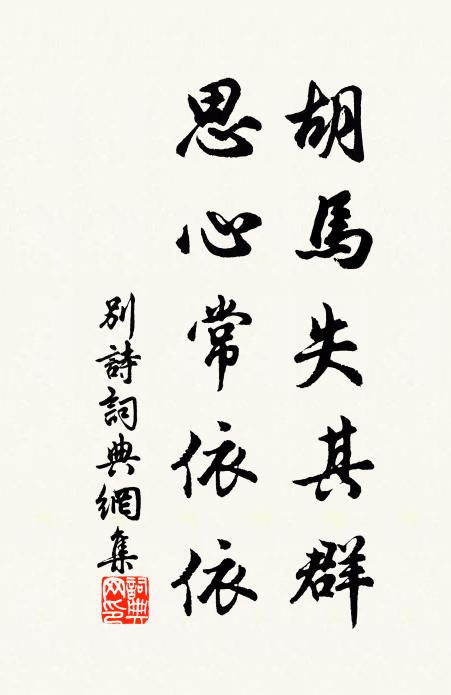 胡馬失其群
思心常依依
別詩詞典網集
詞典網印